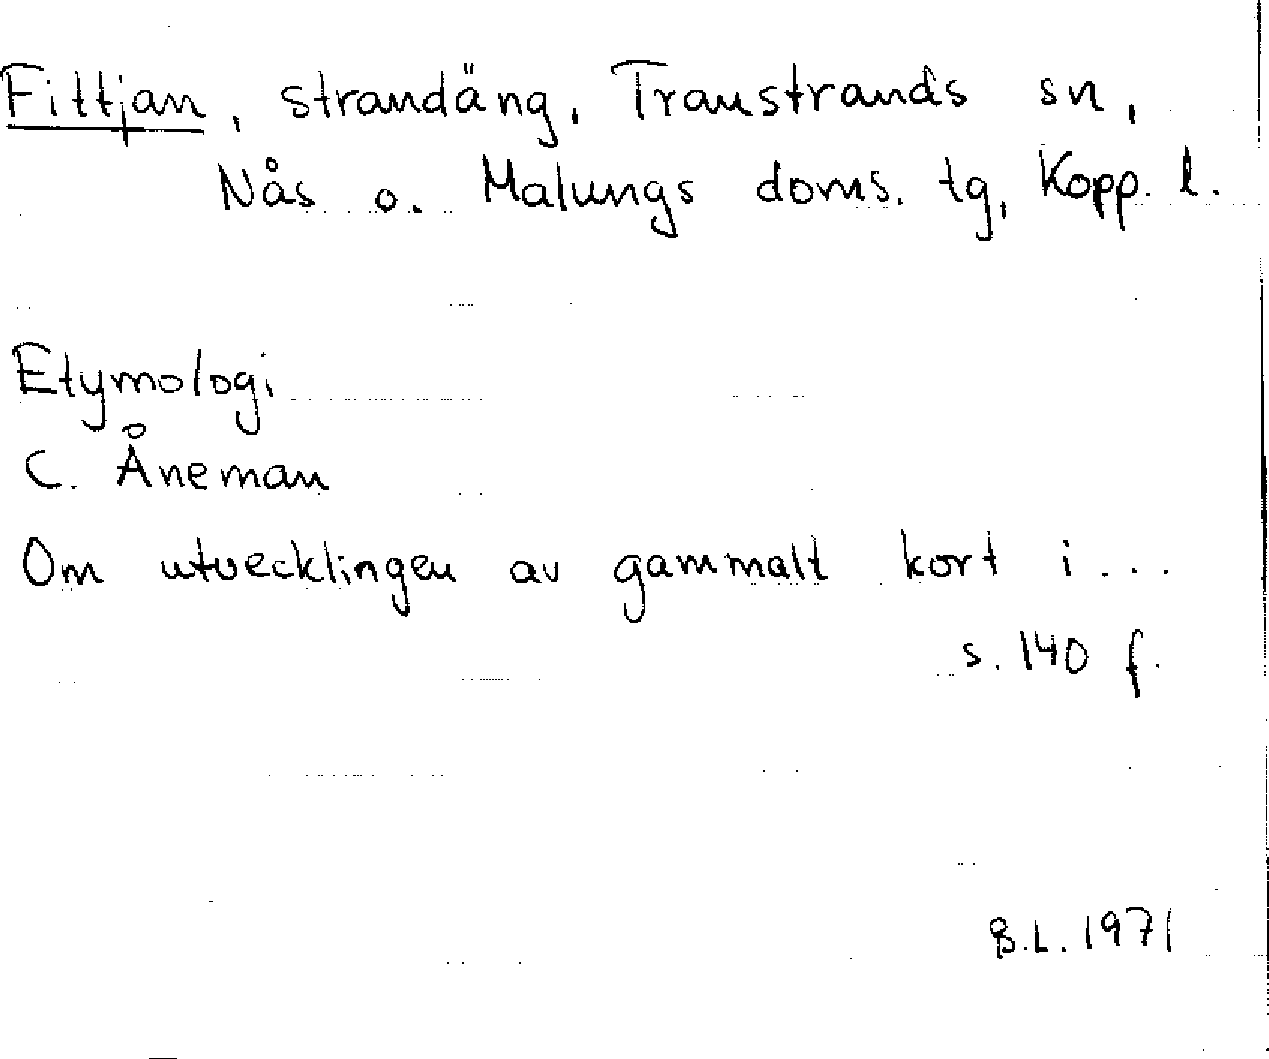 Fittjan, strandäng, Transtrands sn,
Nås o. Malungs doms. tg, Kopp. l.
Etymologi
C. Åneman
Om utvecklingen av gammalt kort i ...
s. 140 f.
B.L. 1971